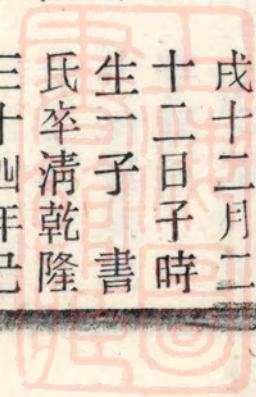 戌十二月二
十二日子時
生一子　書
氏卒淸乾隆
三十四年己